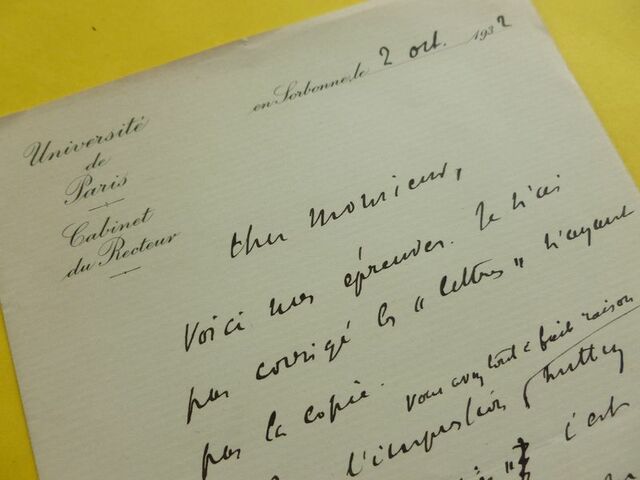 Université
de
Paris
Cabinet
du Recteur
en Sorbonne, le 2 oct. 1932
Cher Monsieur,
Voici mes épreuves. Je n'ai
pas corrigé les "lettres" n'ayant
pas la copie. Vous avez tout à fait raison
l'impression
c'est